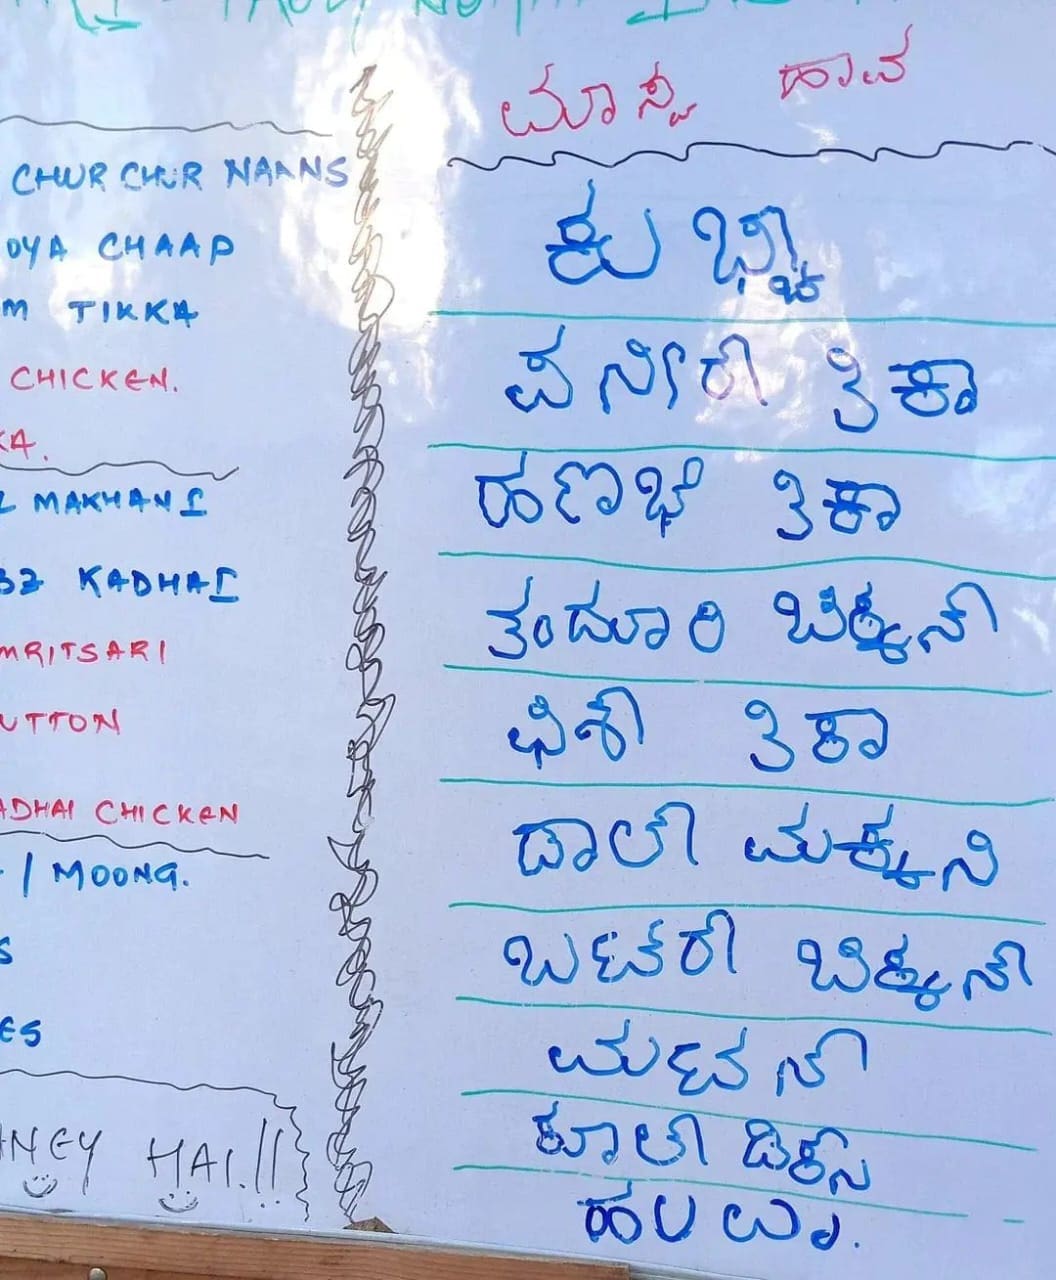 CHUR CHUR NAANS
OYA CHAAP
M TIKKA
CHICKEN.
KA.
L MAKHANI
BZ KADHAI
MRITSARI
UTTON
ADHAI CHICKEN
/ MOONG.
S
ES
NEY HAI.!!
ಮಾಸ್ಟ ಹಾವ
ಪನೀರ್ ತಿಕಾ
ತಿಕಾ
ತಂದೂರಿ ಚಿಕ್ಕನ್
ಫಿಶ್ ತಿಕಾ
ದಾಲ್ ಮಕ್ಕನಿ
ಬಟರ್ ಚಿಕ್ಕನ್
ಮಟನ್
ಕೂಲ್ ಡಿಕ್ಸ್
ಹಲವಾ.